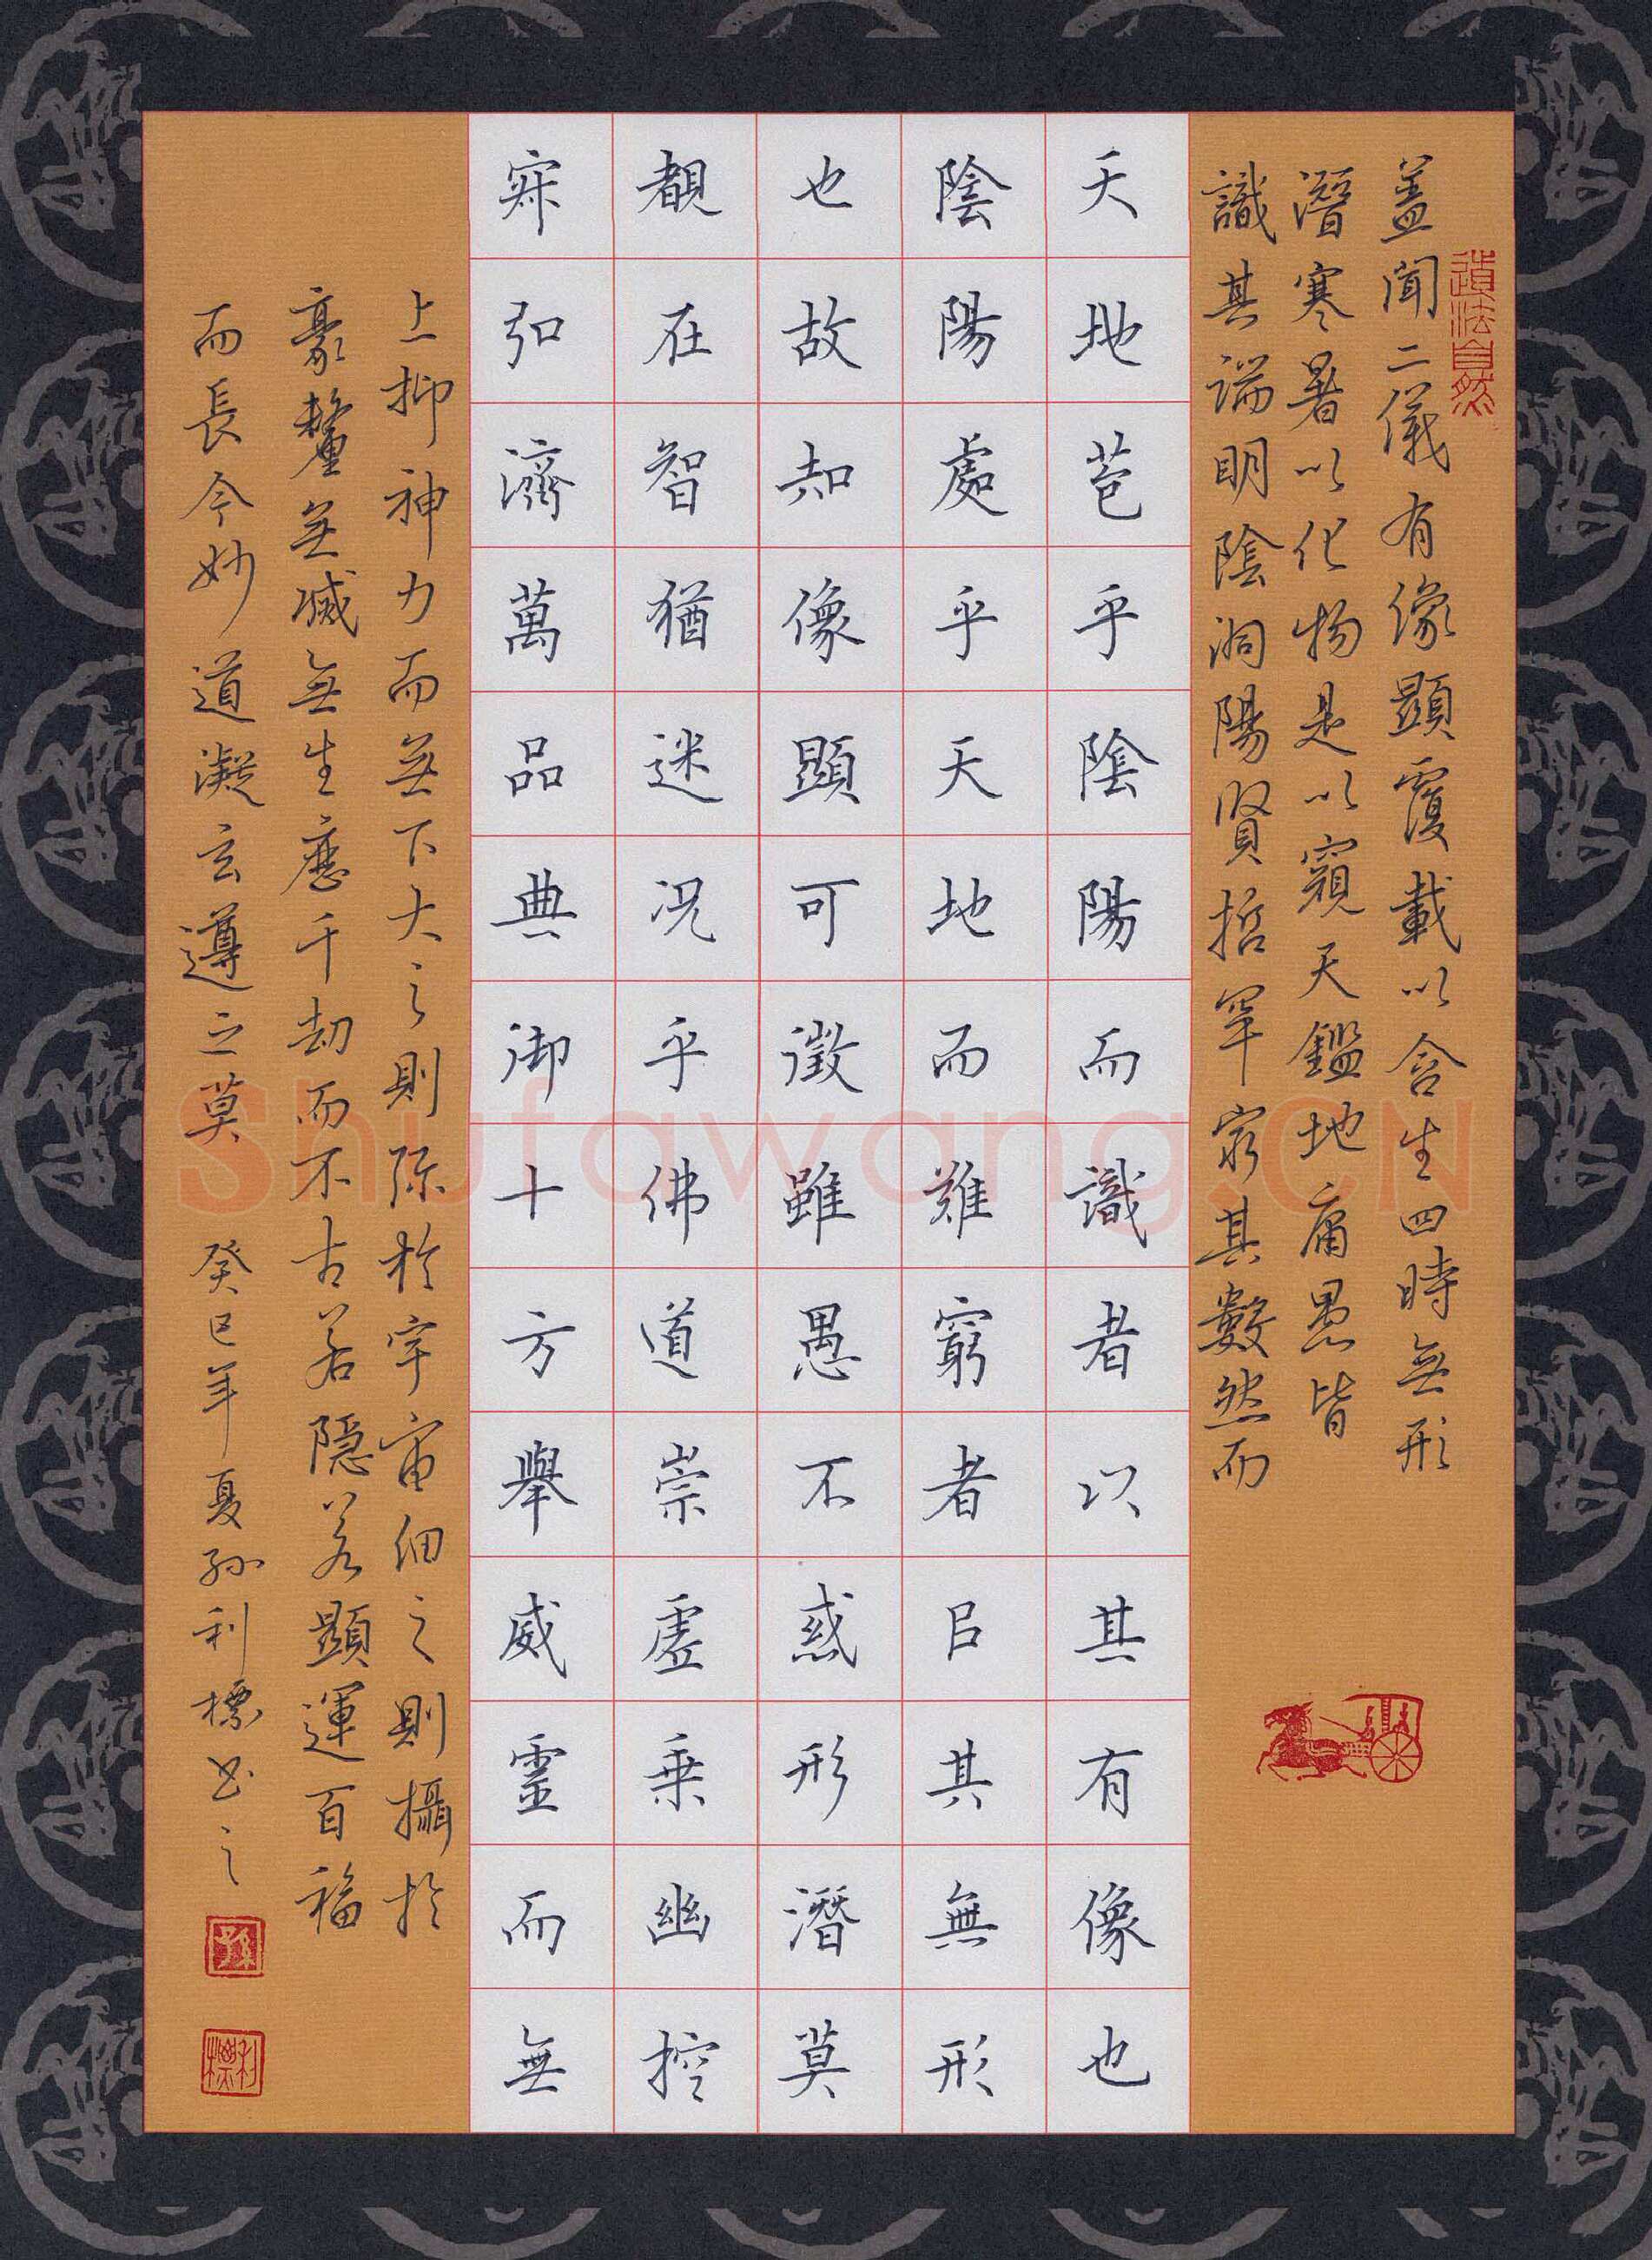 道法自然
蓋聞二儀有像顯覆載以含生四時無形
潛寒暑以化物是以窺天鑑地庸愚皆
識其端明陰洞陽賢哲罕窮其數然而
天地苞乎陰陽而識者以其有像也
陰陽處乎天地而難窮者以其無形
也故知像顯可徵雖愚不惑形潛莫
覩在智猶迷況乎佛道崇虛乘幽控
寂弘濟萬品典御十方舉威靈而無
上抑神力而無下大之則彌於宇宙細之則攝於
豪釐無滅無生歷千劫而不古若隱若顯運百福
而長今妙道凝玄遵之莫 癸巳年夏孫利標書之
孫
利標
Shufawang.CN